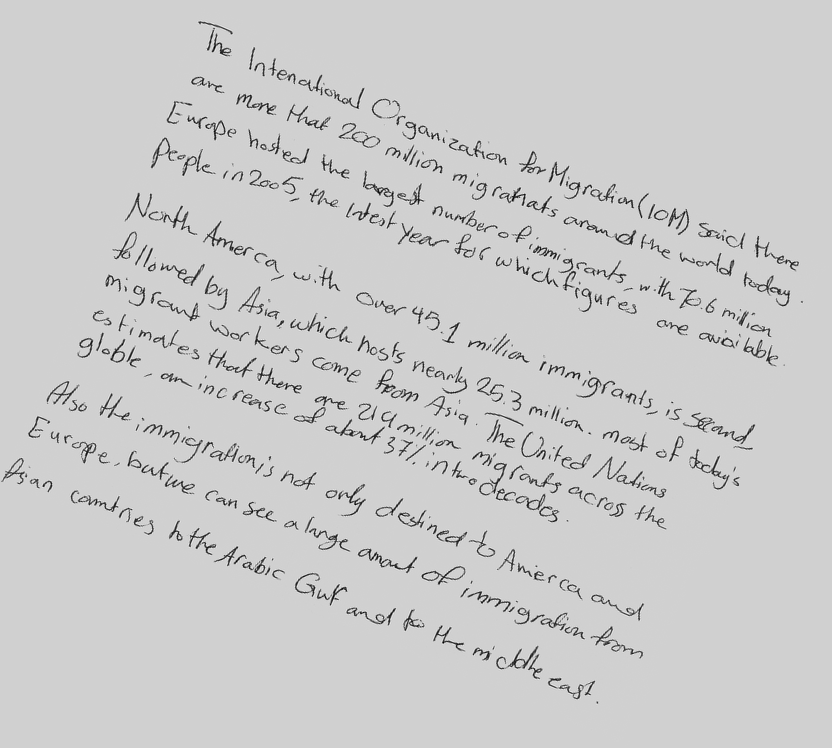 The Intenational Organization for Migration (IOM) said there
are more that 200 million migrants around the world today.
Europe hosted the largest number of immigrants, with 70.6 million
People in 2005, the latest year for which figures are avialable.
North Amerca, with over 45.1 million immigrants, is second,
followed by Asia, which hosts nearly 25.3 million. most of today's
migrant workers come from Asia. The United Nations
estimates that there are 214 million migrants across the
globle, an increase of about 37% in two decades.
Also the immigration is not only destined to Amierca and
Europe, but we can see a large amout of immigration from
Asian countries to the Arabic Gulf and to the middle east.